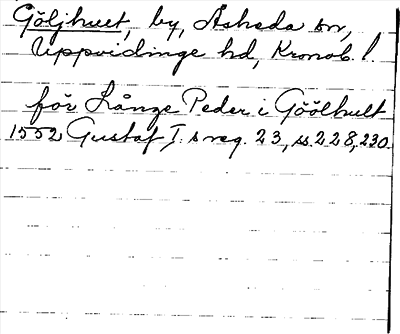 Göljhult, by, Åsheda sn,
Uppvidinge hd, Kronob. l.
för Långe Peder i Göölhult
1552 Gustaf I.s reg. 23, ss. 228, 230.